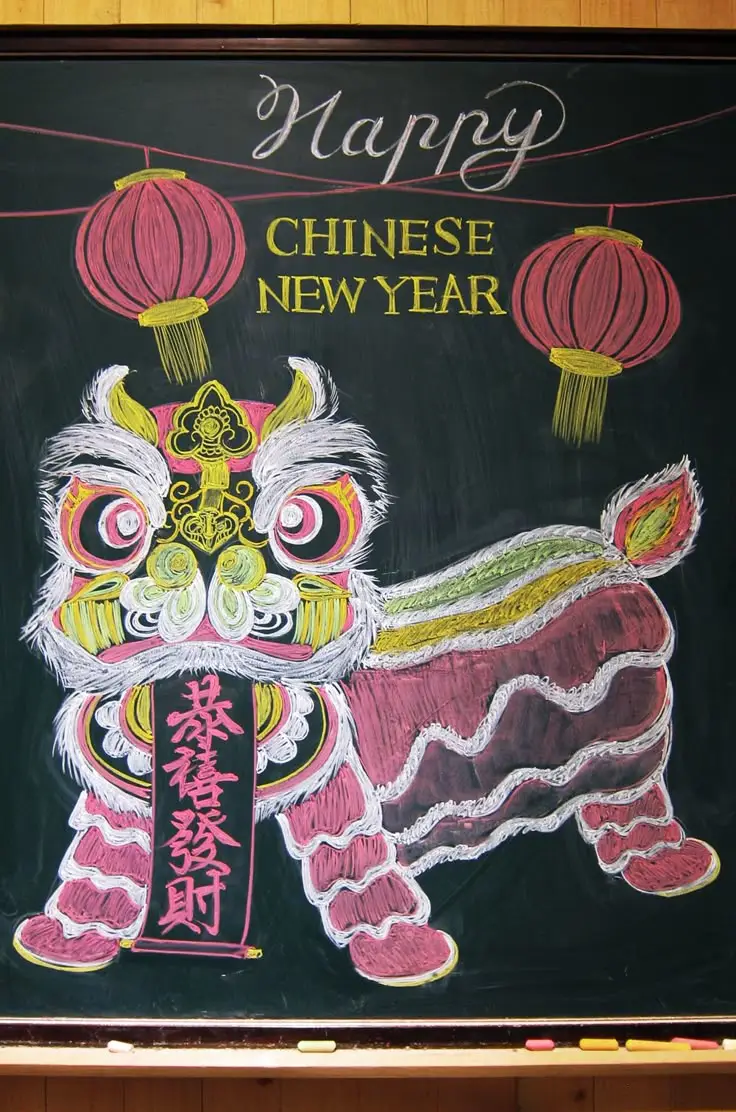 Happy
CHINESE
NEW YEAR
恭禧發財